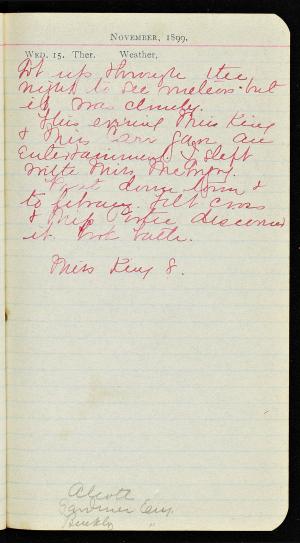 NOVEMBER, 1899.
WED. 15. Ther. Weather,
Got up through the
night to see meteors but
it was cloudy.
This evening Miss King
& Miss Carr gave an
entertainment. I slept
with Miss
Went down town &
to library. Felt cross
& Miss discovered
it. Took bath.
Miss King 8.
Alcott
Gardiner